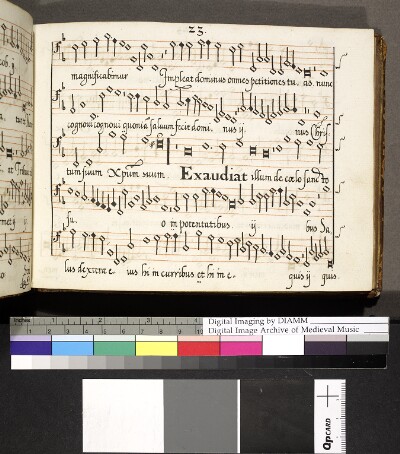 23.
magnificabimur Impleat dominus omnes petitiones tu. as. nunc
cognovi cognovi quoniā saluum fecit domi. nus ij. nus Chris
tum suum Xpum suum. Exaudiat illum de cœlo sancto
su. o m potentatibus ij bus Sa
lus dextræ e. ius hi in curribus et hi in e. quis ij quis
inches 1 2 3
Digital Imaging by DIAMM
Digital Image Archive of Medieval Music
QPCARD